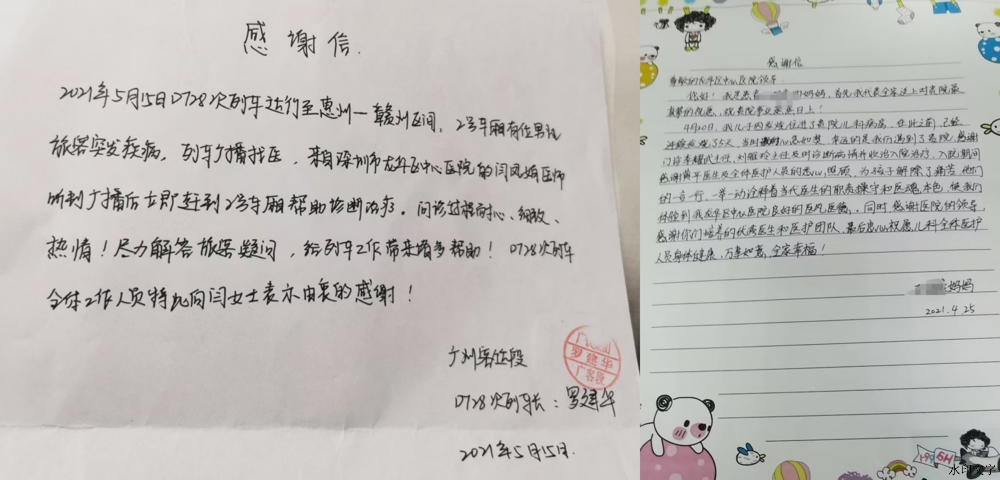 感谢信.
2021年5月15日D728次列车运行至惠州—赣州区间,2号车厢有位男
旅客突发疾病,列车广播找医,来自深圳市龙华区中心医院的闫风娟医师
听到广播后立即赶到2号车厢帮助诊断治疗。问诊过程耐心、细致、
热情!尽力解答旅客疑问,给列车工作带来增多帮助!D728次列车
全体工作人员特此向闫女士表示由衷的感谢!
广州客运段
D728次列车长:罗建华
2021年5月15日.
罗建华
广客段
感谢信
尊敬的龙华区中心医院领导:
您好!我是患者妈妈,首先我代表全家送上对贵院最
真挚的祝愿,祝贵院事业蒸蒸日上!
4月20日,我儿子因发烧住进了贵院儿科病房,在此之前,已经
连续发烧了5天,当时心急如焚,幸运的是我们遇到了贵院,感谢
门诊李耀武主任,刘雁玲主任及时诊断病情并收治入院治疗,入院期间
感谢黄平医生及全体医护人员的悉心照顾,为孩子解除了痛苦,他们
的一言一行,一举一动诠释着当代医生的职责操守和医魂本色,使我们
体验到我龙华区中心医院良好的医风医德,同时感谢医院的领导,
感谢你们培养的优秀医生和医护团队,最后忠心祝愿儿科全体医护
人员身体健康,万事如意,全家幸福!
妈妈
2021.4.25
水印文字